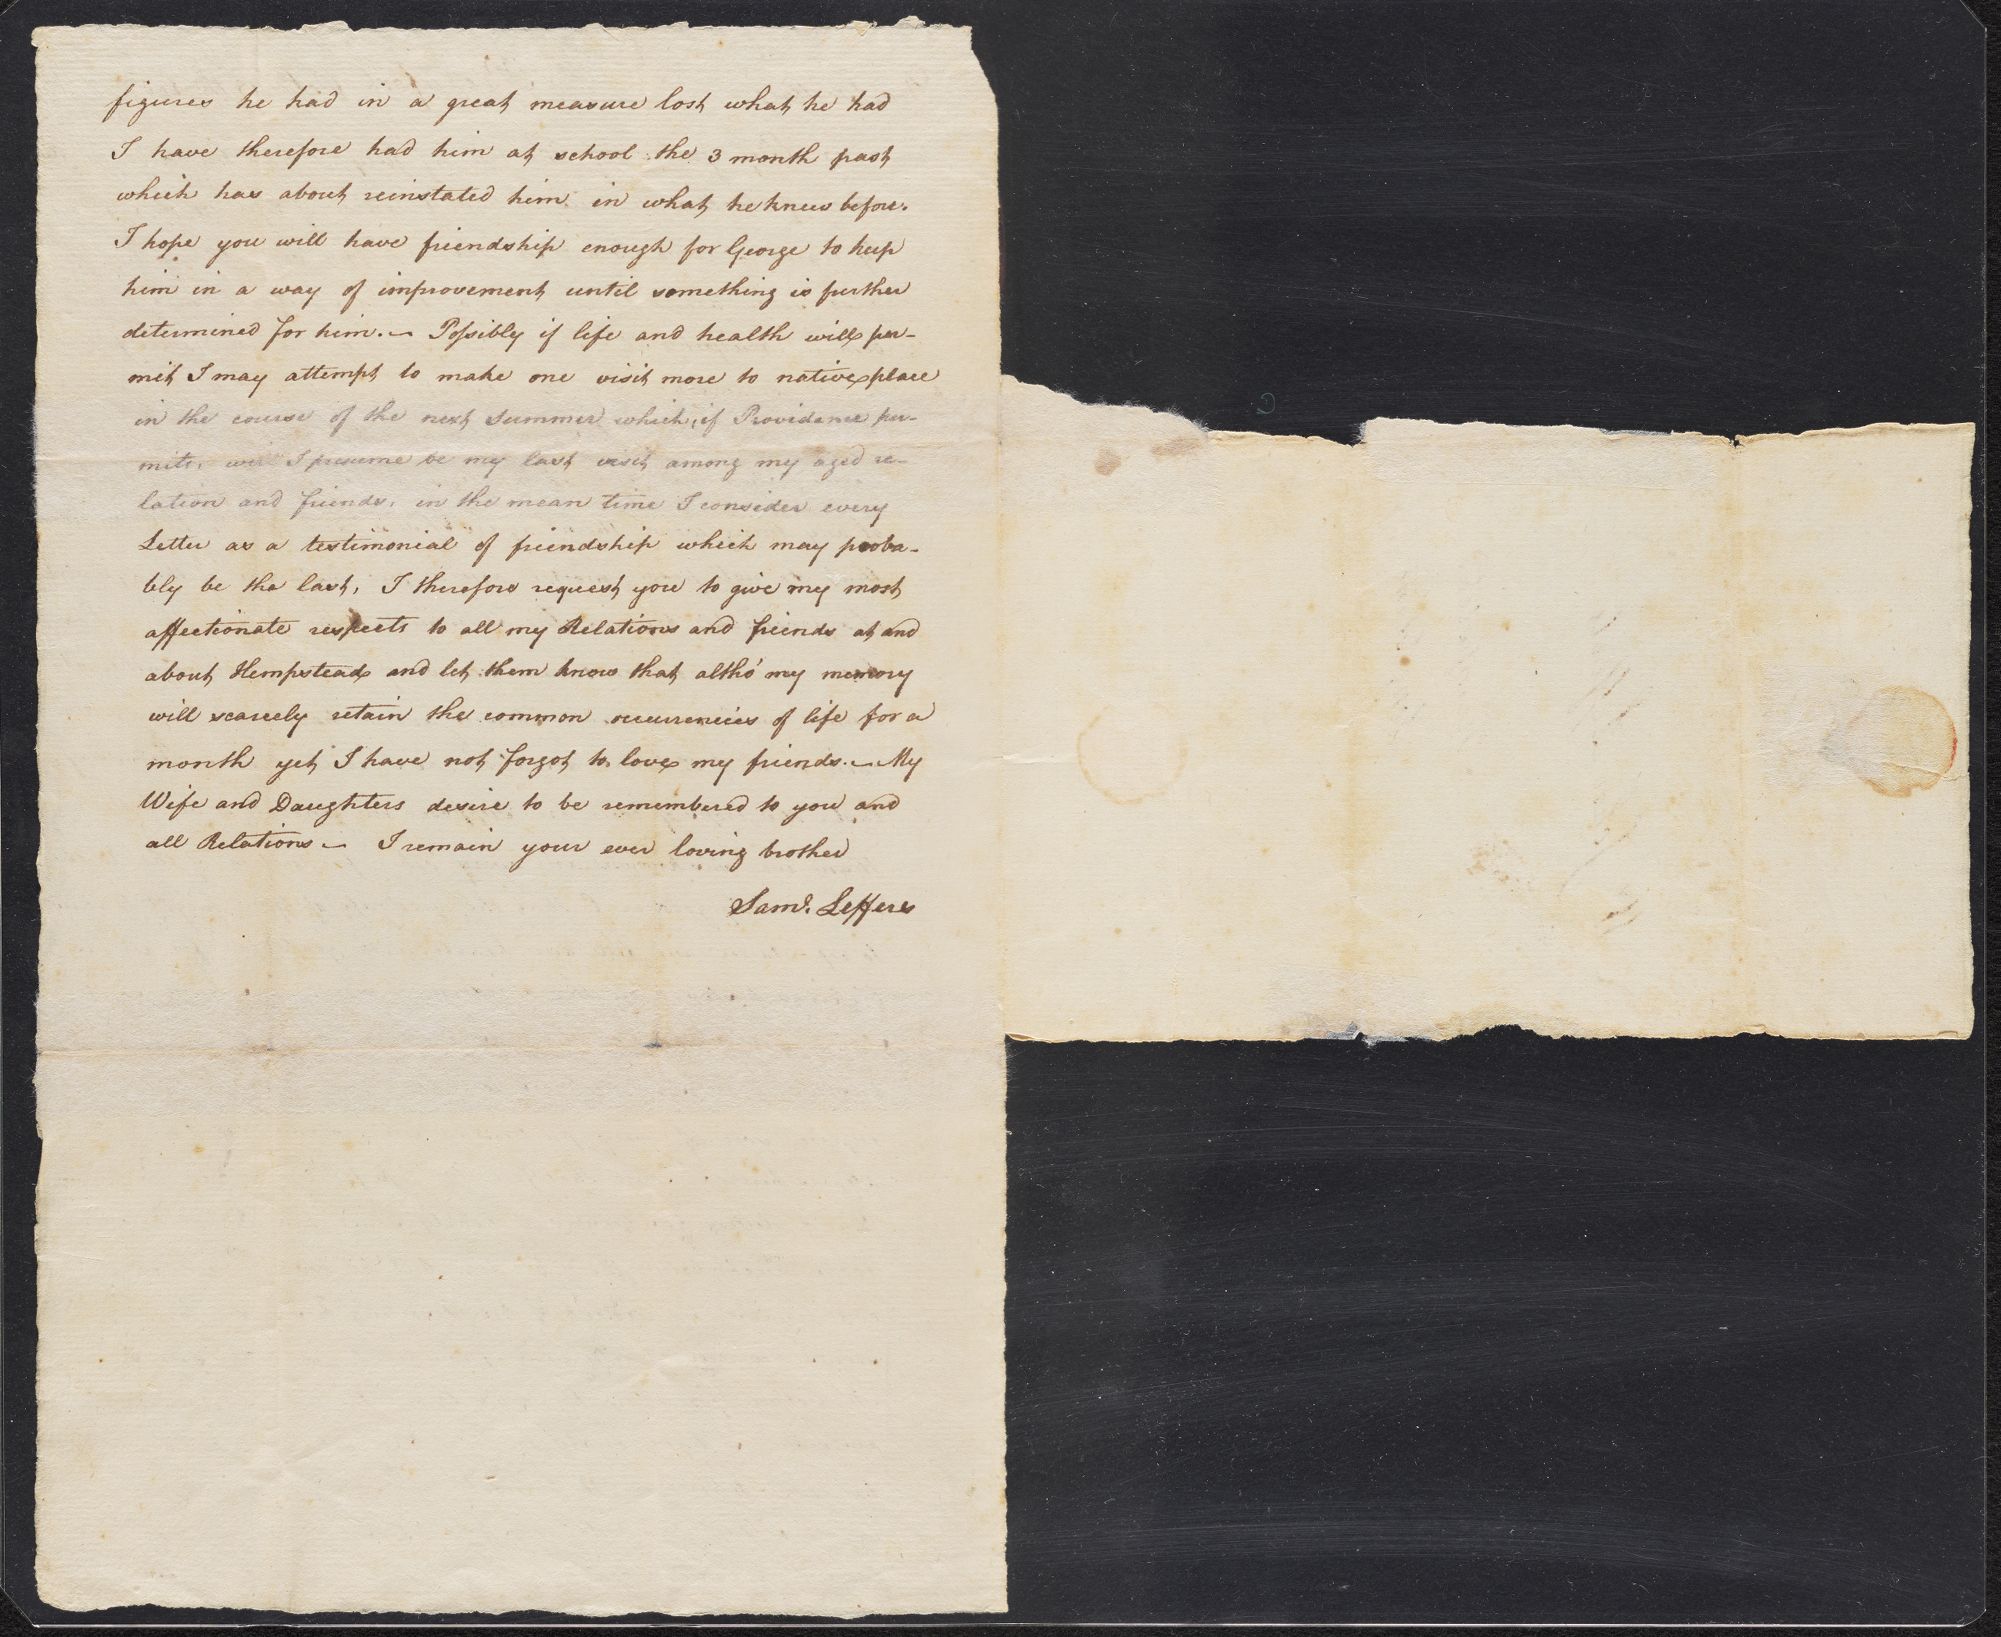 figures he had in a great measure lost what he had
I have therefore had him at school the 3 month past
which has about reinstated him in what he knew before.
I hope you will have friendship enough for George to keep
him in a way of improvement until something is further
determined for him. — Possibly if life and health will per-
mit I may attempt to make one visit more to native place
in the course of the next summer which, if Providence per-
mits, will I presume be my last visit among my aged re-
lation and friends, in the mean time I consider every
Letter as a testimonial of friendship which may proba-
bly be the last, I therefore request you to give my most
affectionate respects to all my Relations and friends at and
about Hempstead and let them know that altho' my memory
will scarcely retain the common occurrencies of life for a
month yet I have not forgot to love my friends. — My
Wife and Daughters desire to be remembered to you and
all Relations — I remain your ever loving brother
Saml. Lefferts